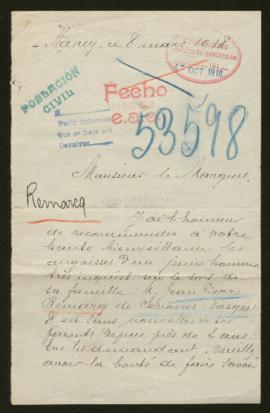 Nancy, ce 8 mars 1918
17 OCT 1918
POBLACIÓN
CIVIL
Fecho
A
Pedir informes
que se hara est
Devolver
53598
Monsieur le Marquis,
Remarcq
J'ai l'honneur
de recommander à votre
haute bienveillance les
angoisses d'un jeune homme
très inquiet sur le sort de
sa famille : M. Jean Pierre
Remarcq de
Il est sans nouvelles de ses
parents depuis près de 2 ans.
En les demandant, veuillez
avoir la bonté de faire savoir